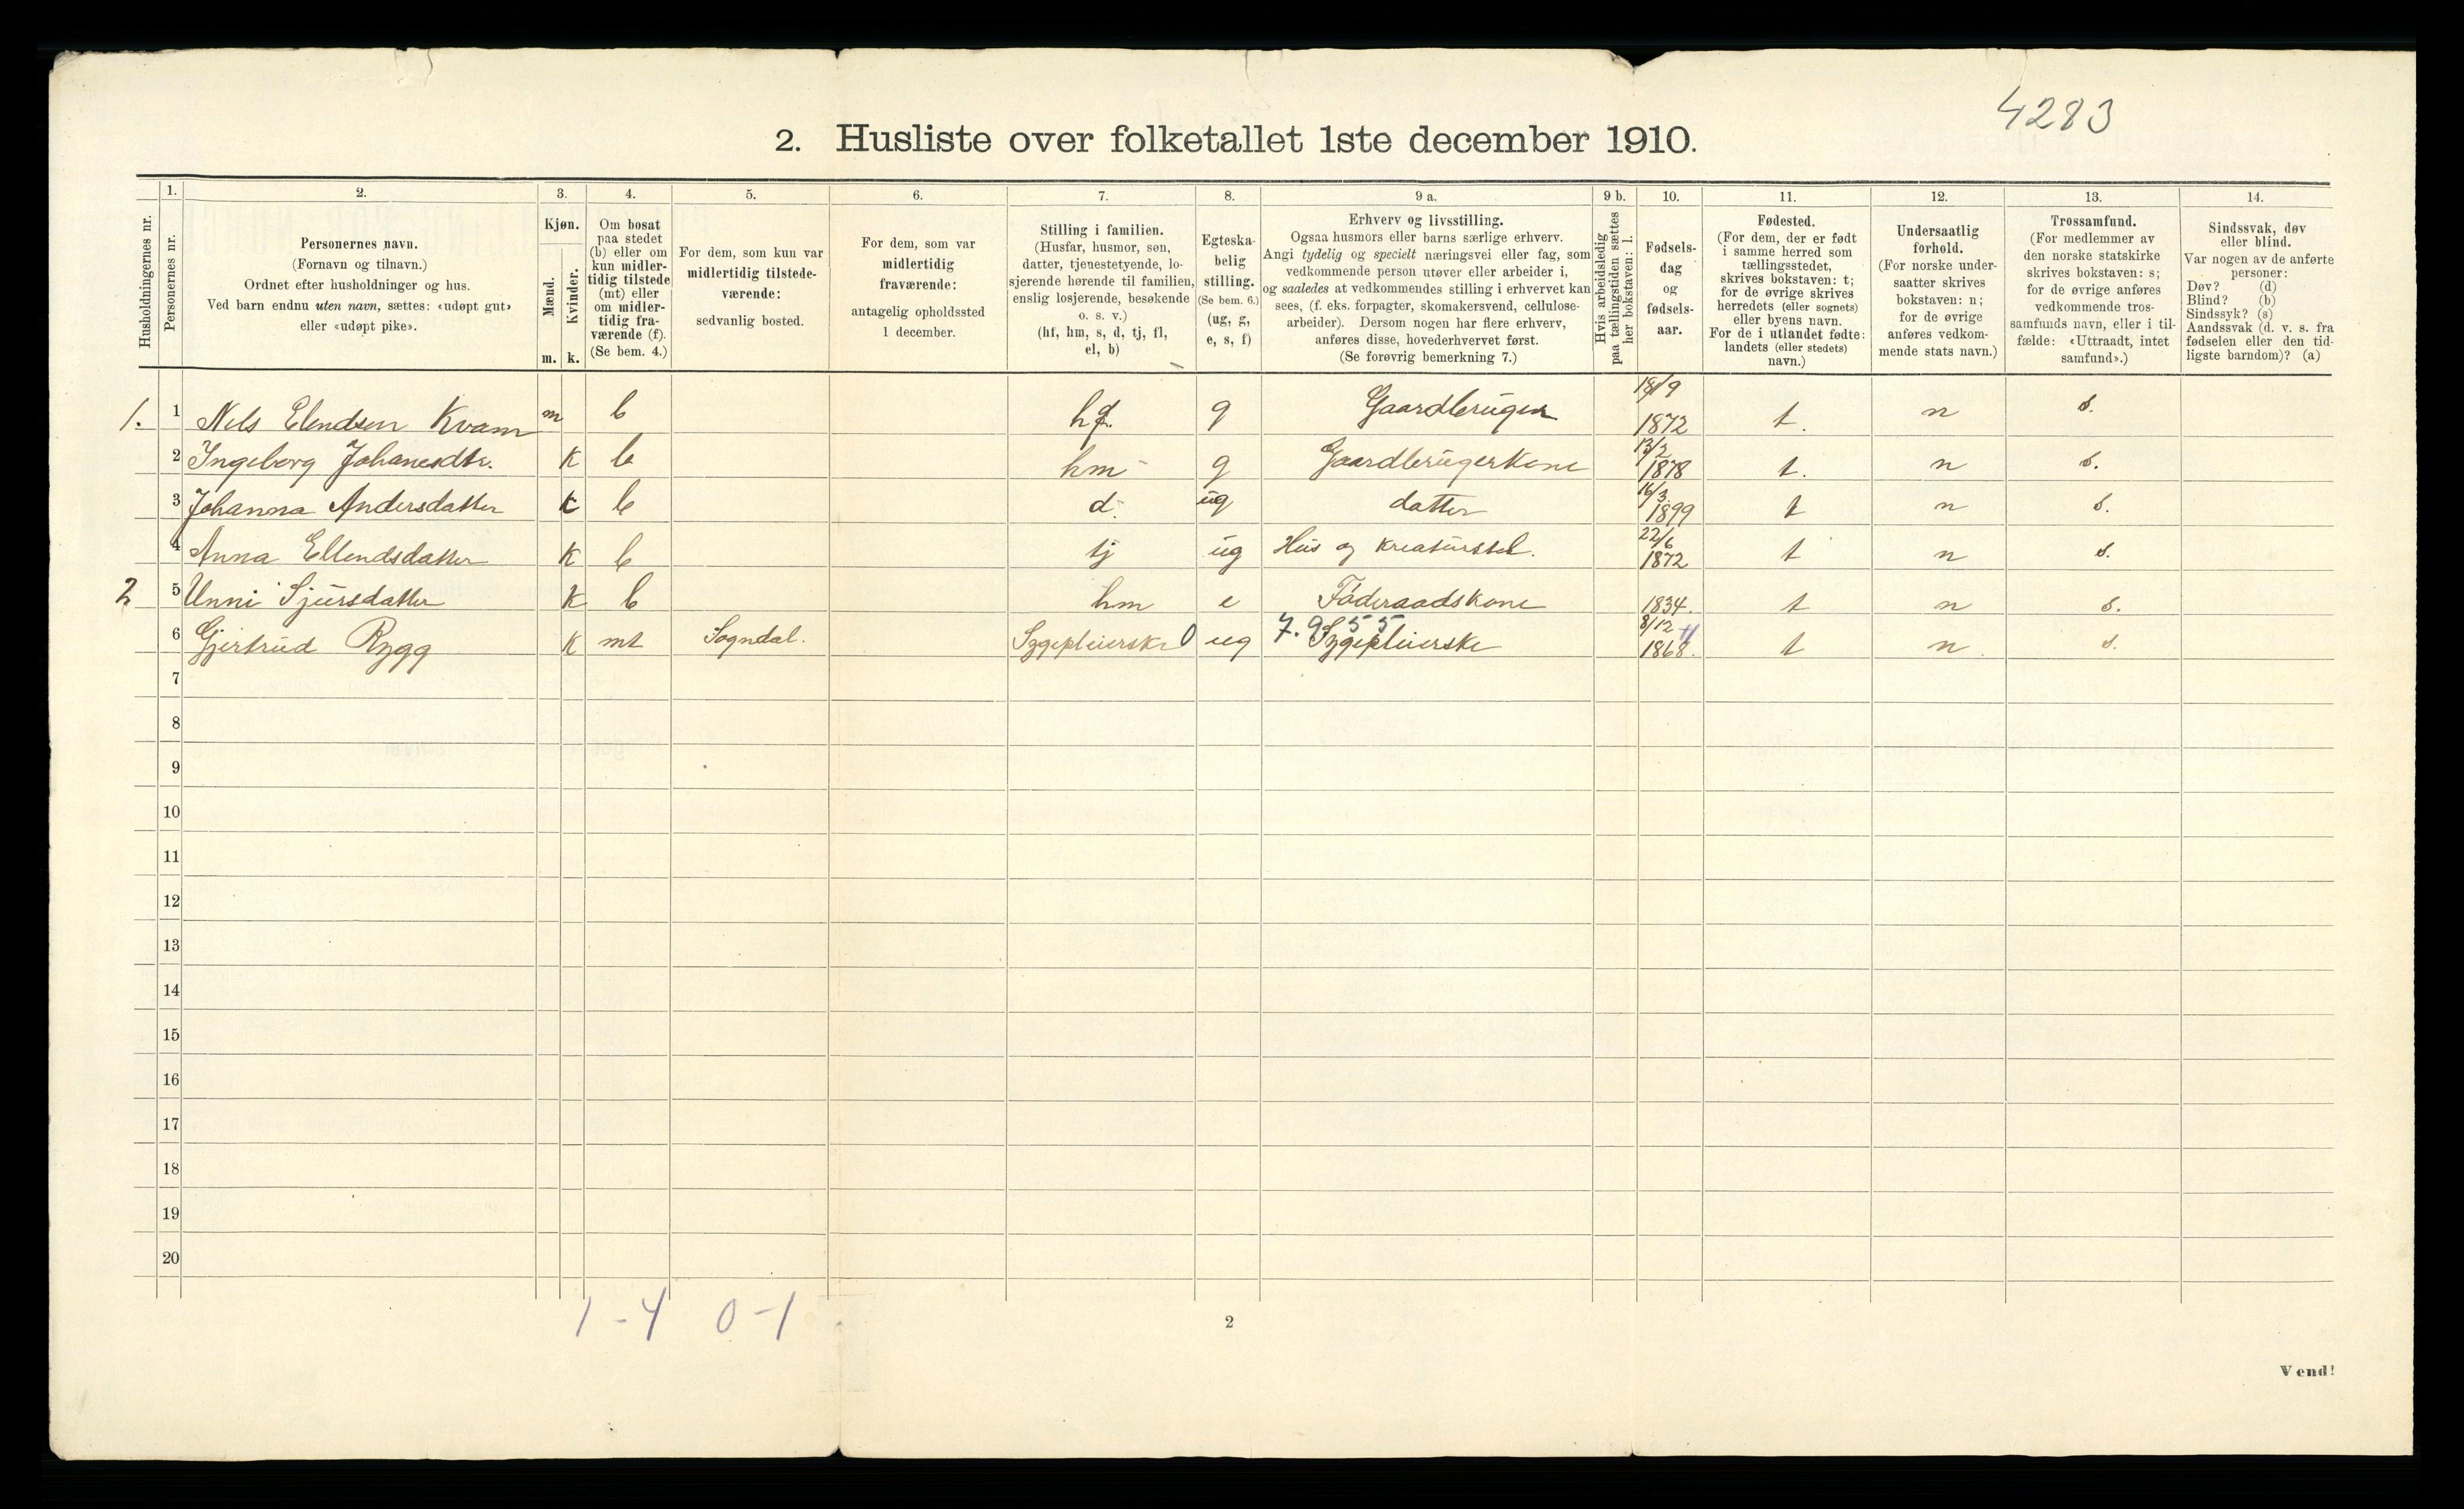 4283
2. Husliste over folketallet 1ste december 1910.
Husholdningernes nr.
1.
Personernes nr.
2.
Personernes navn.
(Fornavn og tilnavn.)
Ordnet efter husholdninger og hus.
Ved barn endnu uten navn, sættes: «udøpt gut»
eller «udøpt pike».
3.
Kjøn.
Mænd.
Kvinder.
m. k.
4.
Om bosat
paa stedet
(b) eller om
kun midler-
tidig tilstede
(mt) eller
om midler-
tidig fra-
værende (f).
(Se bem. 4.)
5.
For dem, som kun var
midlertidig tilstede-
værende:
sedvanlig bosted.
6.
For dem, som var
midlertidig
fraværende:
antagelig opholdssted
1 december.
7.
Stilling i familien.
(Husfar, husmor, søn,
datter, tjenestetyende, lo-
sjerende hørende til familien,
enslig losjerende, besøkende
o. s. v.)
(hf, hm, s, d, tj, fl,
el, b)
8.
Egteska-
belig
stilling.
(Se bem. 6.)
(ug, g,
e, s, f)
9 a.
Erhverv og livsstilling.
Ogsaa husmors eller barns særlige erhverv.
Angi tydelig og specielt næringsvei eller fag, som
vedkommende person utøver eller arbeider i,
og saaledes at vedkommendes stilling i erhvervet kan
sees, (f. eks. forpagter, skomakersvend, cellulose-
arbeider). Dersom nogen har flere erhverv,
anføres disse, hovederhvervet først.
(Se forøvrig bemerkning 7.)
9 b.
Hvis arbeidsledig
paa tællingstiden sættes
her bokstaven: l.
10.
Fødsels-
dag
og
fødsels-
aar.
11.
Fødested.
(For dem, der er født
i samme herred som
tællingsstedet,
skrives bokstaven: t;
for de øvrige skrives
herredets (eller sognets)
eller byens navn.
For de i utlandet fødte:
landets (eller stedets)
navn.)
12.
Undersaatlig
forhold.
(For norske under-
saatter skrives
bokstaven: n;
for de øvrige
anføres vedkom-
mende stats navn.)
13.
Trossamfund.
(For medlemmer av
den norske statskirke
skrives bokstaven: s;
for de øvrige anføres
vedkommende tros-
samfunds navn, eller i til-
fælde: «Uttraadt, intet
samfund».)
14.
Sindssvak, døv
eller blind.
Var nogen av de anførte
personer:
Døv? (d)
Blind? (b)
Sindssyk? (s)
Aandssvak (d. v. s. fra
fødselen eller den tid-
ligste barndom)? (a)
1. 1 Nels Elendsen Kvam m b hf. g Gaardbruger 18/9 1872 t. n s.
2 Ingeborg Johanesdtr. K b hm g Gaardbrugerkone 13/2 1878 t. n s.
3 Johanna Andersdatter K b d. ug datter 16/3 1899 t n s.
4 Anna Ellendsdatter K b tj ug Hus og kreaturstel. 22/6 1872 t n s.
2 5 Unni Sjursdatter K b hm e Føderaadskone 1834. t n s.
6 Gjertrud Rygg K mt Sogndal. Sygepleierske 0 ug 7. 9 5 5 Sygepleierske 8/12 1868. t n. s.
7
8
9
10
11
12
13
14
15
16
17
18
19
20
1 - 4 0 - 1
2
Vend!